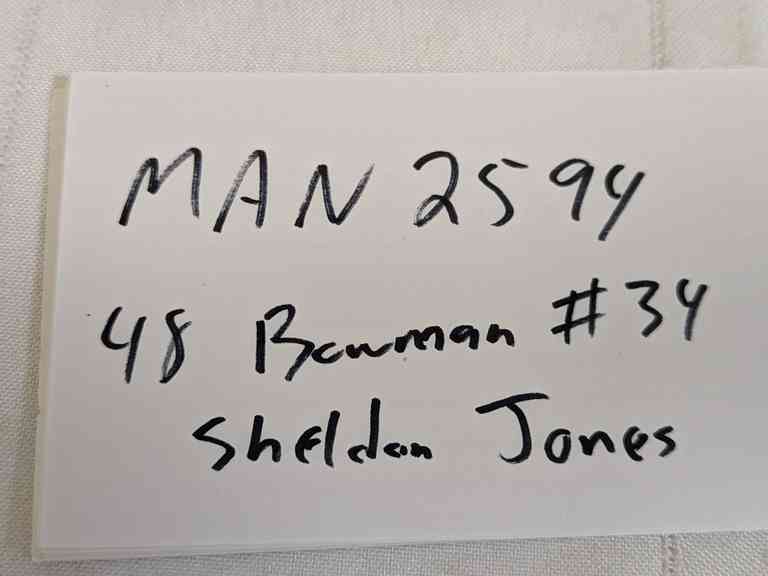 MAN 2594
48 Bowman #34
Sheldon Jones